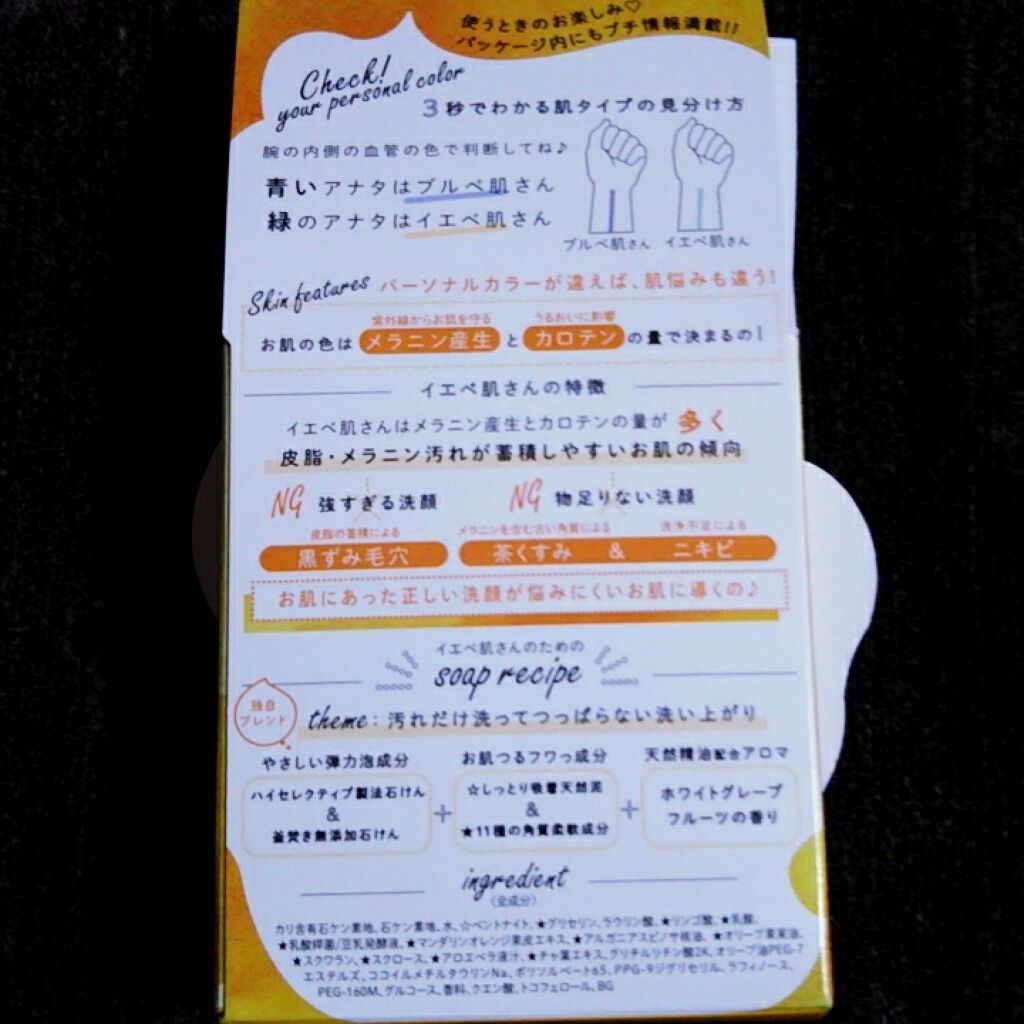 使うときのお楽しみ♡
パッケージ内にもプチ情報満載!!
Check!
your personal color
3秒でわかる肌タイプの見分け方
腕の内側の血管の色で判断してね♪
青いアナタはブルベ肌さん
緑のアナタはイエベ肌さん
ブルベ肌さん イエベ肌さん
Skin features パーソナルカラーが違えば、肌悩みも違う!
紫外線からお肌を守る うるおいに影響
お肌の色はメラニン産生とカロテンの量で決まるの!
イエベ肌さんの特徴
イエベ肌さんはメラニン産生とカロテンの量が多く
皮脂・メラニン汚れが蓄積しやすいお肌の傾向
NG 強すぎる洗顔 NG 物足りない洗顔
皮脂の蓄積による メラニンを含む古い角質による 洗浄不足による
黒ずみ毛穴 茶くすみ & ニキビ
お肌にあった正しい洗顔が悩みにくいお肌に導くの♪
イエベ肌さんのための
soap recipe
独自
ブレンド
theme:汚れだけ洗ってつっぱらない洗い上がり
やさしい弾力泡成分 お肌つるフワっ成分 天然精油配合アロマ
ハイセレクティブ製法石けん
&
釜焚き無添加石けん
+
☆しっとり吸着天然泥
&
★11種の角質柔軟成分
+
ホワイトグレープ
フルーツの香り
ingredient
〈全成分〉
カリ含有石ケン素地、石ケン素地、水、☆ベントナイト、★グリセリン、ラウリン酸、★リンゴ酸、★乳酸、
★乳酸桿菌/豆乳発酵液、★マンダリンオレンジ果皮エキス、★アルガニアスピノサ核油、★オリーブ果実油、
★スクワラン、★スクロース、★アロエベラ液汁、★チャ葉エキス、グリチルリチン酸2K、オリーブ油PEG-7
エステルズ、ココイルメチルタウリンNa、ポリソルベート65、PPG-9ジグリセリル、ラフィノース、
PEG-160M、グルコース、香料、クエン酸、トコフェロール、BG